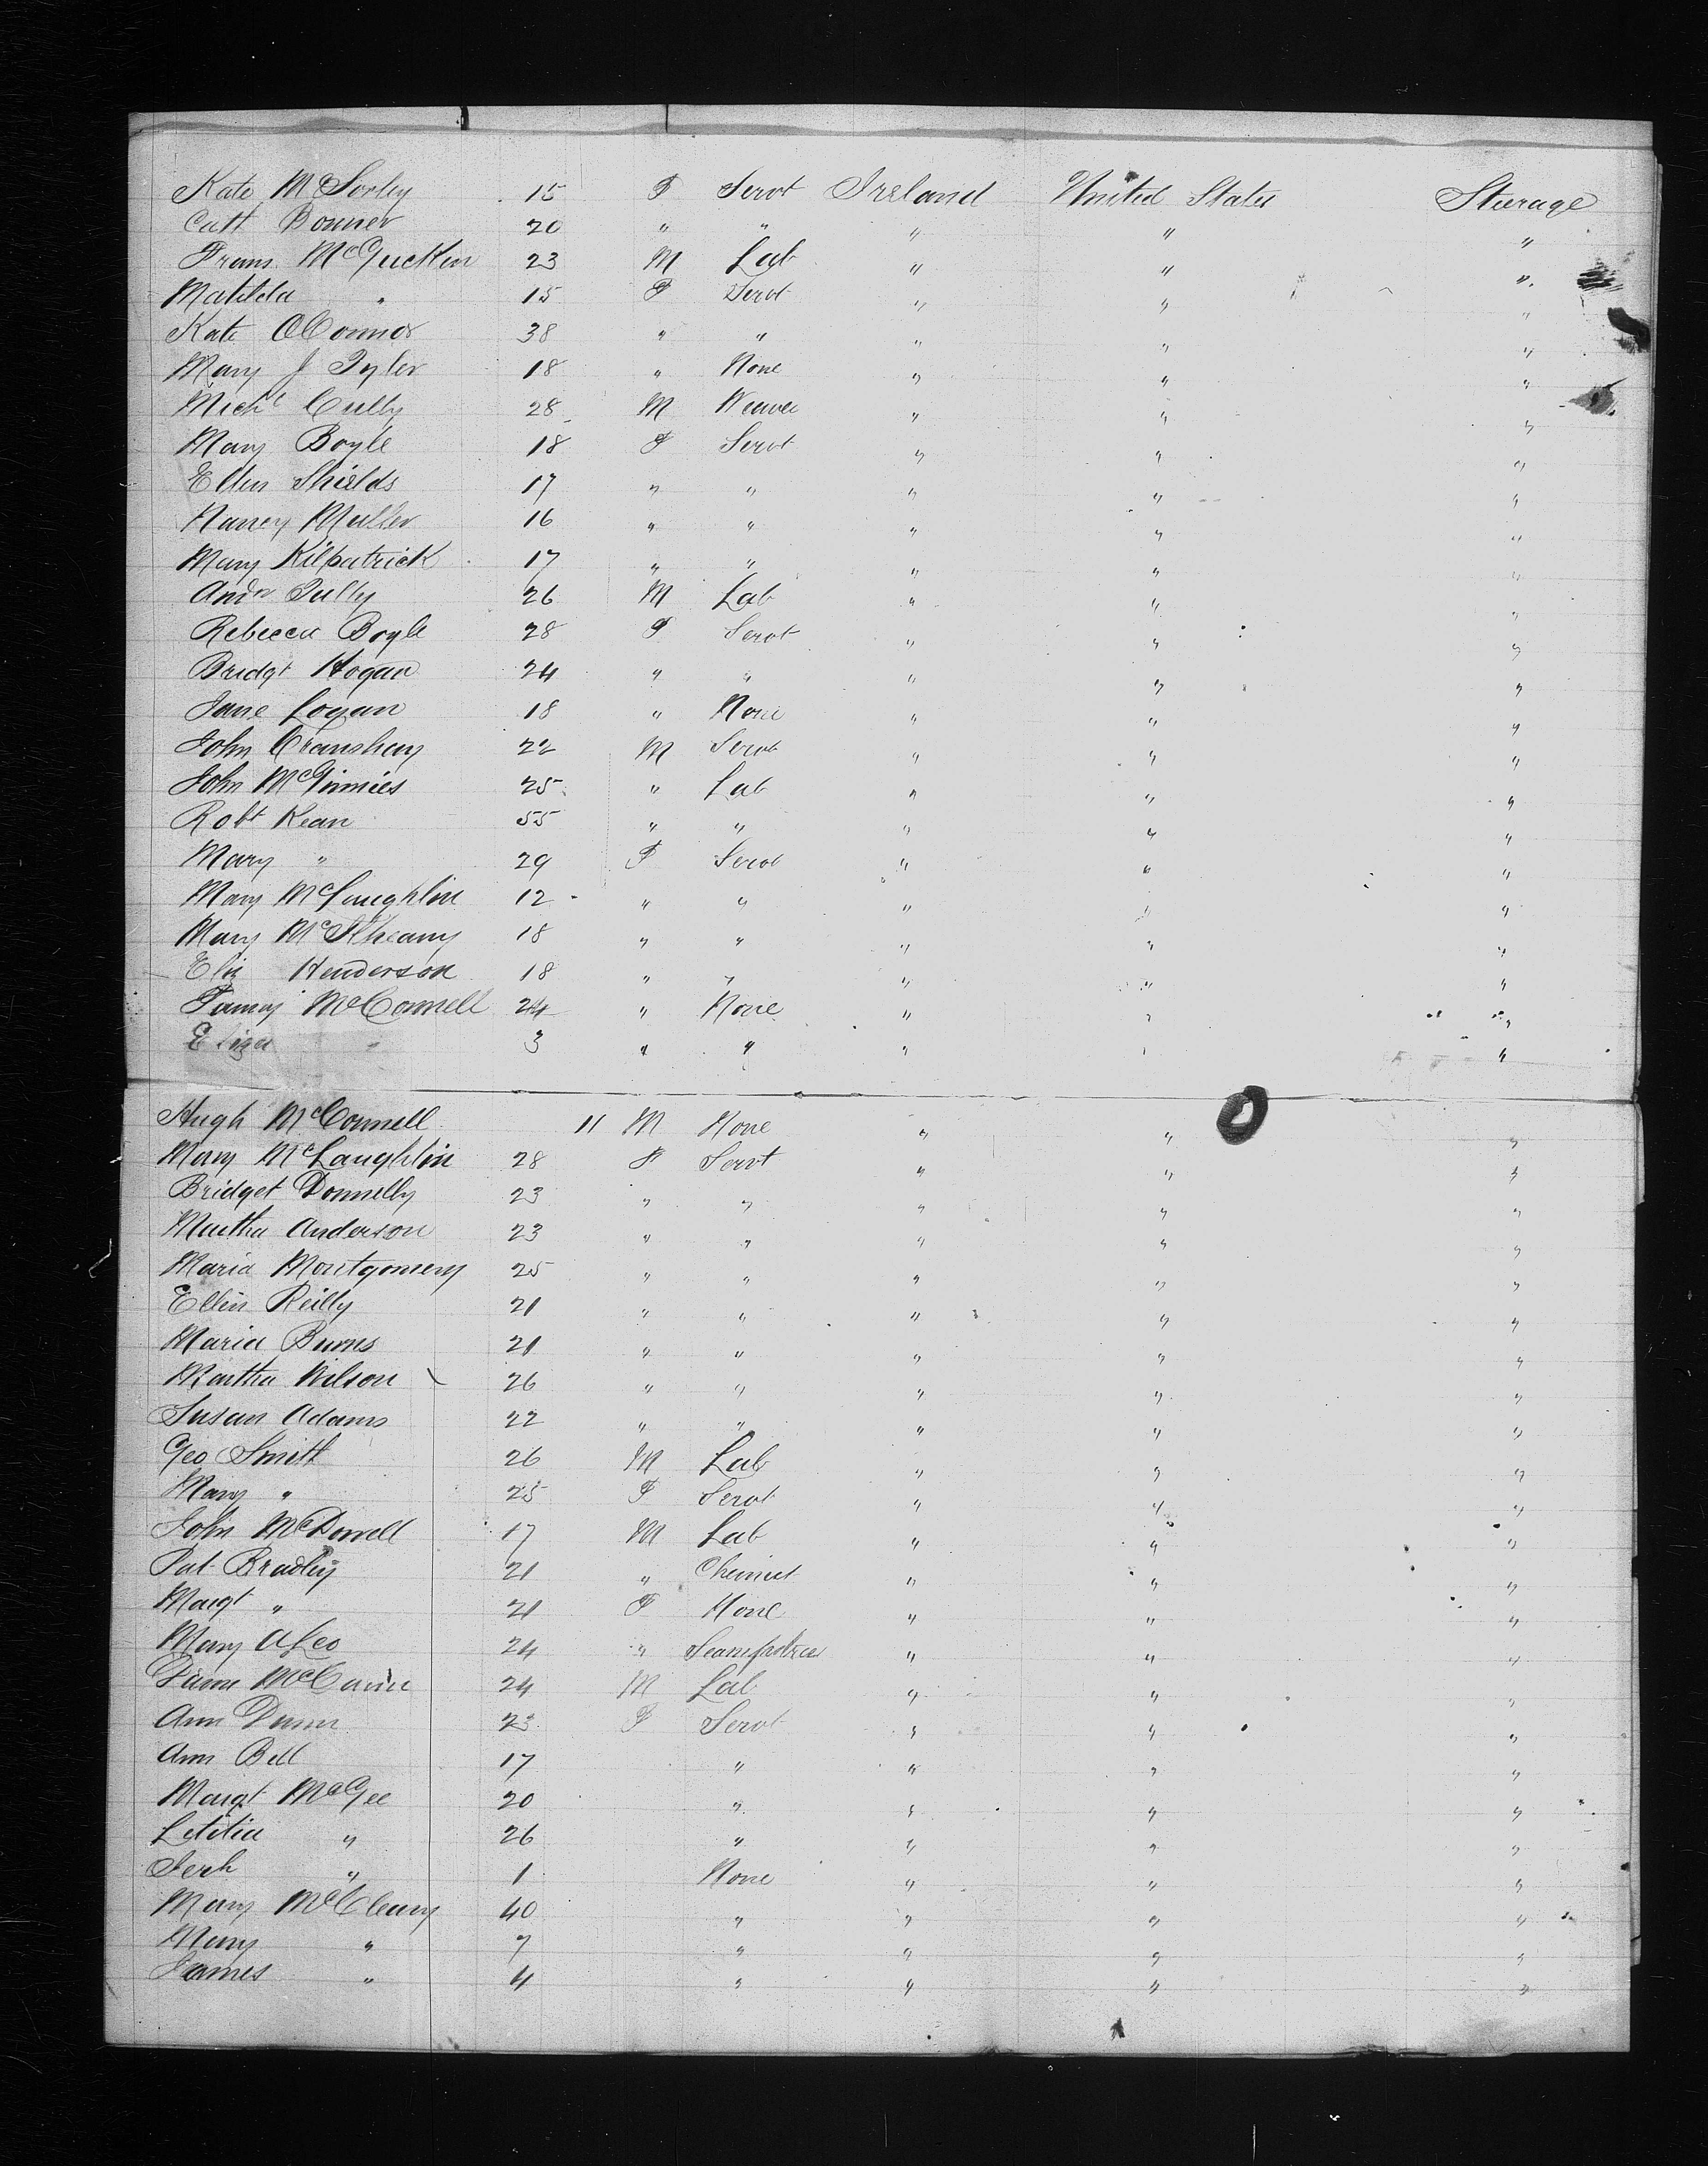 Kate McSorley 15 F Servt Ireland United States Steerage
Cath Bonner 20 " " " " "
Frans McGuckin 23 M Lab " " "
Matilda " 15 F Servt " " "
Kate OConnor 38 " " " " "
Mary J Tyler 18 " None " " "
Michl Cully 28 M Weaver " " "
Mary Boyle 18 F Servt " " "
Ellen Shields 17 " " " " "
Nancy Muller 16 " " " " "
Mary Kilpatrick 17 " " " " "
Andw Tully 26 M Lab " " "
Rebecca Boyle 28 F Servt " " "
Bridgt Hogan 24 " " " " "
Jane Logan 18 " None " " "
John Cranshay 22 M Servt " " "
John McGinnies 25 " Lab " " "
Robt Kean 55 " " " " "
Mary " 29 F Servt " " "
Mary McLaughlin 12 " " " " "
Mary McIlheany 18 " " " " "
Eliz Henderson 18 " " " " "
Fanny McConnell 24 " None " " "
Eliza " 3 " " " " "
Hugh McConnell 11 M None " " "
Mary McLaughlin 28 F Servt " " "
Bridget Donnelly 23 " " " " "
Martha Anderson 23 " " " " "
Maria Montgomery 25 " " " " "
Ellen Reilly 21 " " " " "
Maria Burns 21 " " " " "
Martha Wilson 26 " " " " "
Susan Adams 22 " " " " "
Geo Smith 26 M Lab " " "
Mary " 25 F Servt " " "
John McDowell 17 M Lab " " "
Pat Bradley 21 " Chemist " " "
Margt " 21 F None " " "
Mary A Leo 24 " Seamstress " " "
24 M Lab " " "
Ann Dunn 23 F Servt " " "
Ann Bell 17 " " " "
Margt McGee 20 " " " "
Letitia " 26 " " " "
" 1 None " " "
Mary McCleary 40 " " " "
Mary " 7 " " " "
James " 4 " " " "